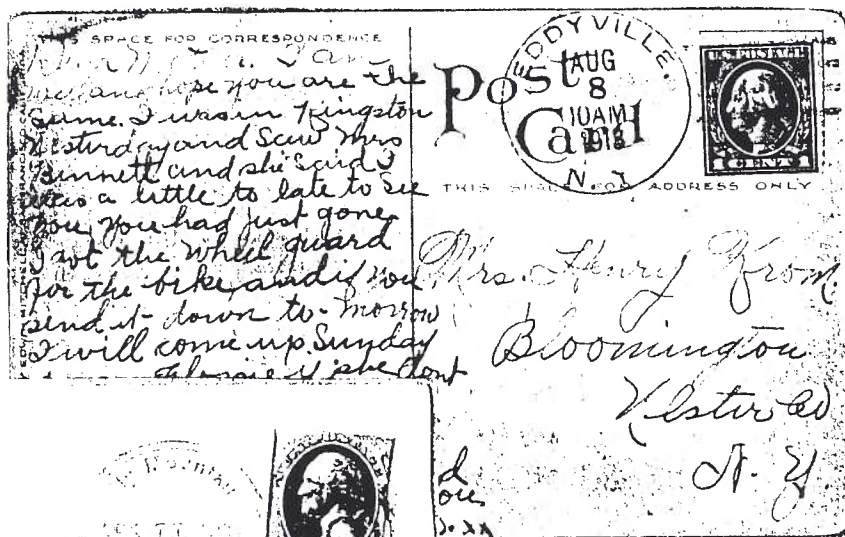 THIS SPACE FOR CORRESPONDENCE
I am
well and hope you are the
same. I was in Kingston
yesterday and saw Mrs
Bennett and she said I
was a little to late to see
you, you had just gone
I got the wheel guard
for the bike, and if you
send it down to-morrow
I will come up Sunday
if she dont
Post Card
EDDYVILLE.
AUG
8
10AM
N.Y.
U.S. POSTAGE
1 CENT 1
THIS SPACE FOR ADDRESS ONLY
Mrs. Henry Krom.
Bloomington
Ulster Co
N. Y.